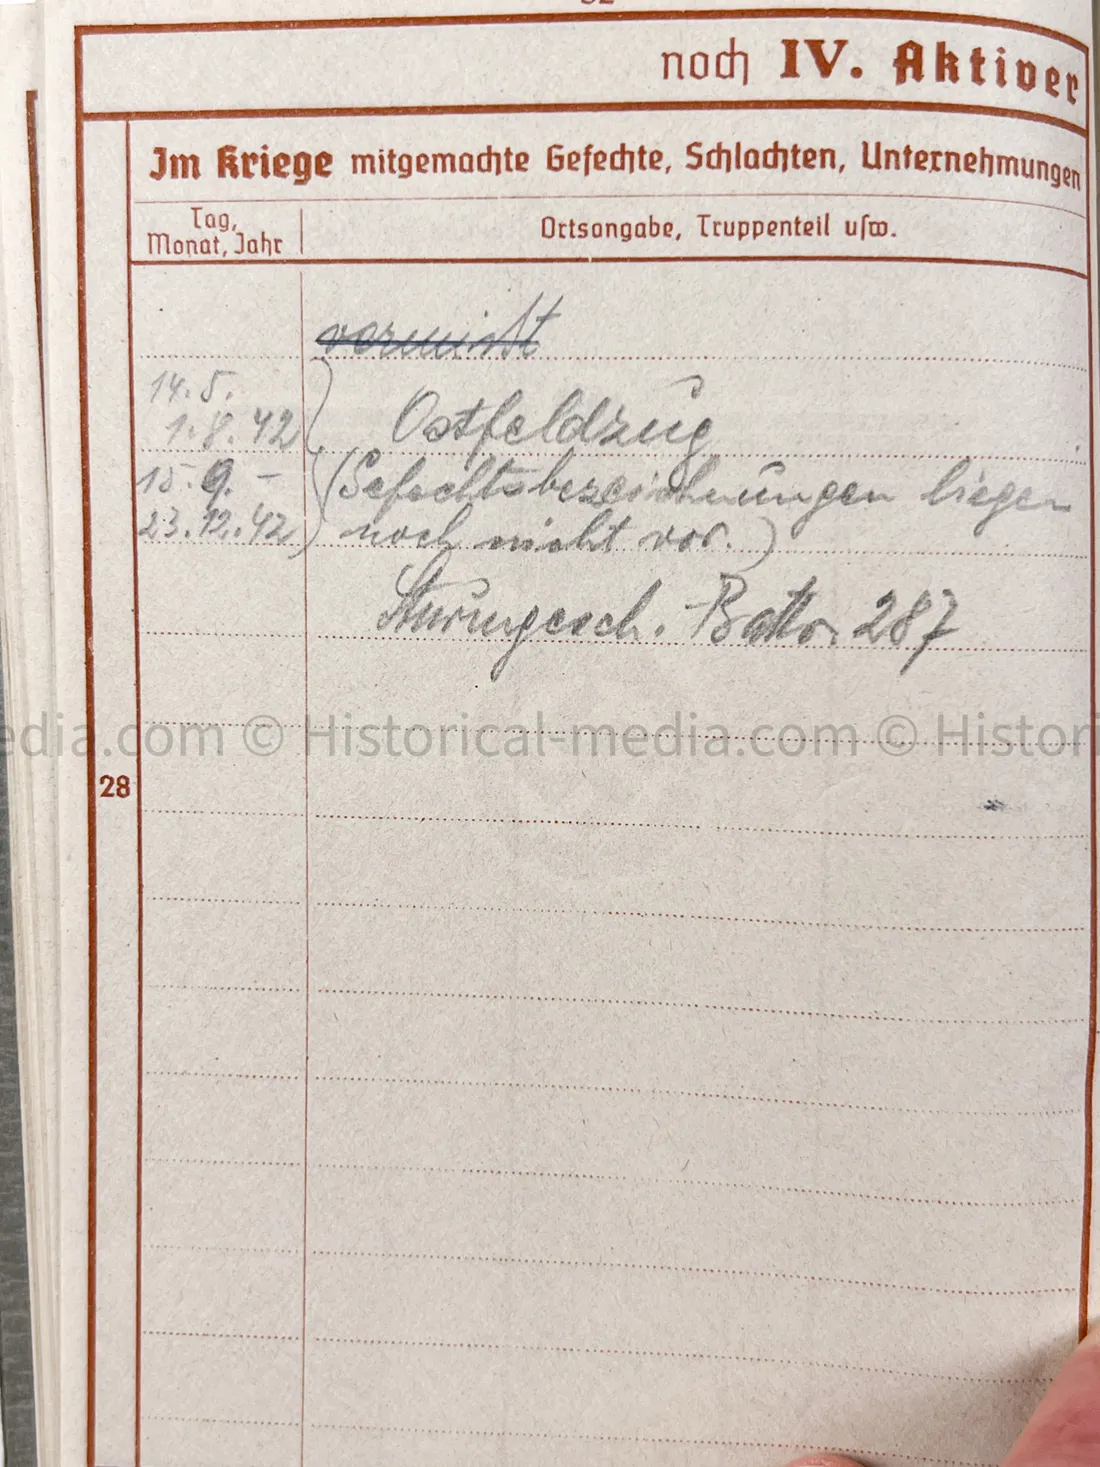 32
noch IV. Aktiver
Im Kriege mitgemachte Gefechte, Schlachten, Unternehmungen
Tag, Monat, Jahr
Ortsangabe, Truppenteil usw.
vermißt
14.5.
1.8.42
Ostfeldzug
15.9. –
(Gefechtsbezeichnungen liegen
23.12.42
noch nicht vor.)
Sturmgesch. Battr. 287
edia.com © Historical-media.com © Histori
28